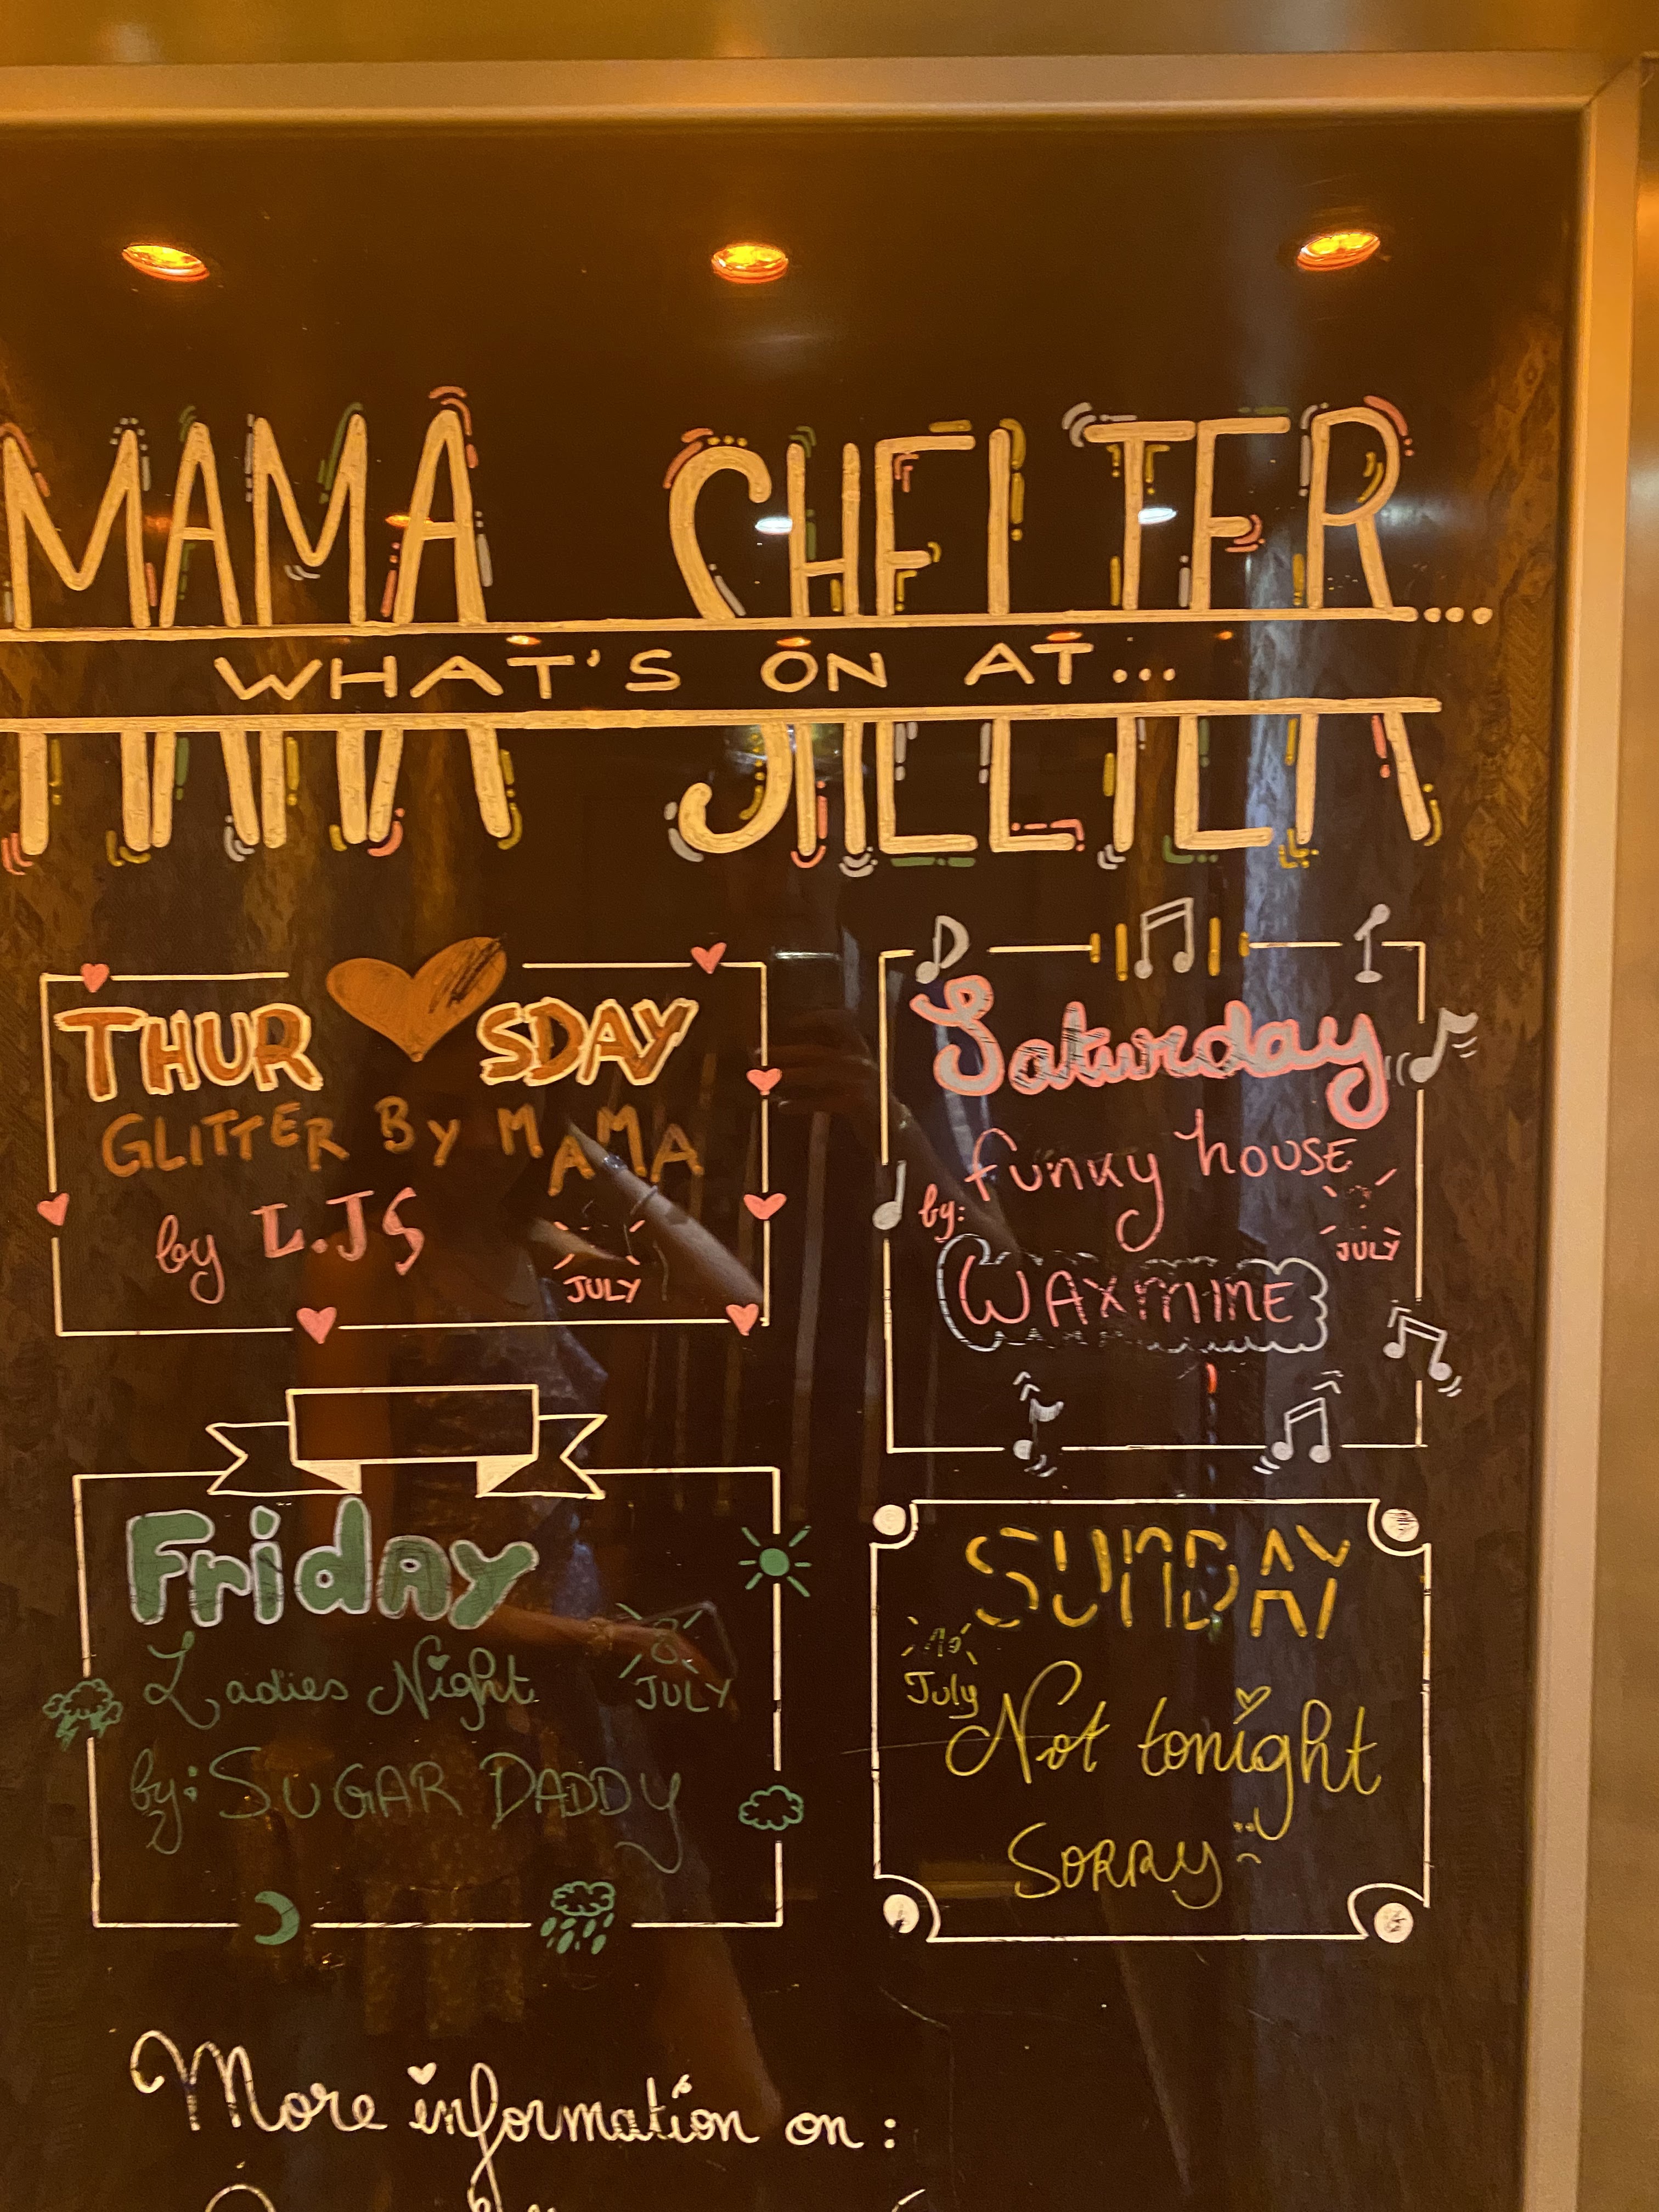 MAMA SHELTER...
WHAT'S ON AT...
THURSDAY
GLITTER BY MAMA
by L.JS
JULY
Friday
Ladies Night
8
JULY
by: SUGAR DADDY
Saturday
funky house
by:
JULY
WAXMINE
SUNDAY
July
Not tonight
SORRY
More information on: